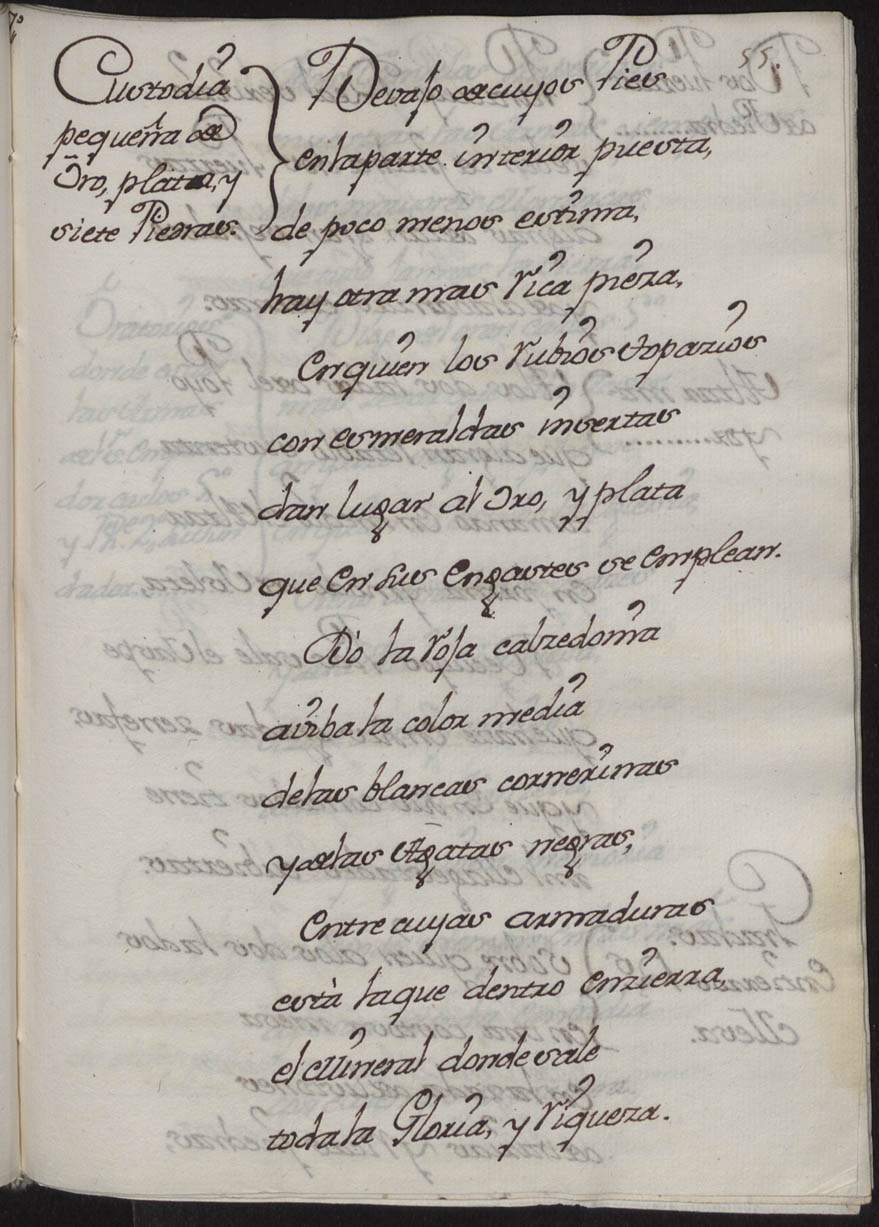 55.
Custodia
pequeña de
Oro, plata, y
siete Piedras.
Devajo de cuyos Pies
en la parte interior puesta,
de poco menos estima,
hay otra mas rica pieza,
En quien los rubios topazios
con esmeraldas insertas
dan lugar al Oro, y plata
que en sus engastes se emplean.
Dò la roja calzedonia
aviba la color media
de las blancas cornerinas
y de las Agatas negras,
Entre cuyas armaduras
està la que dentro enzierra
el Mineral donde sale
toda la Gloria, y riqueza.